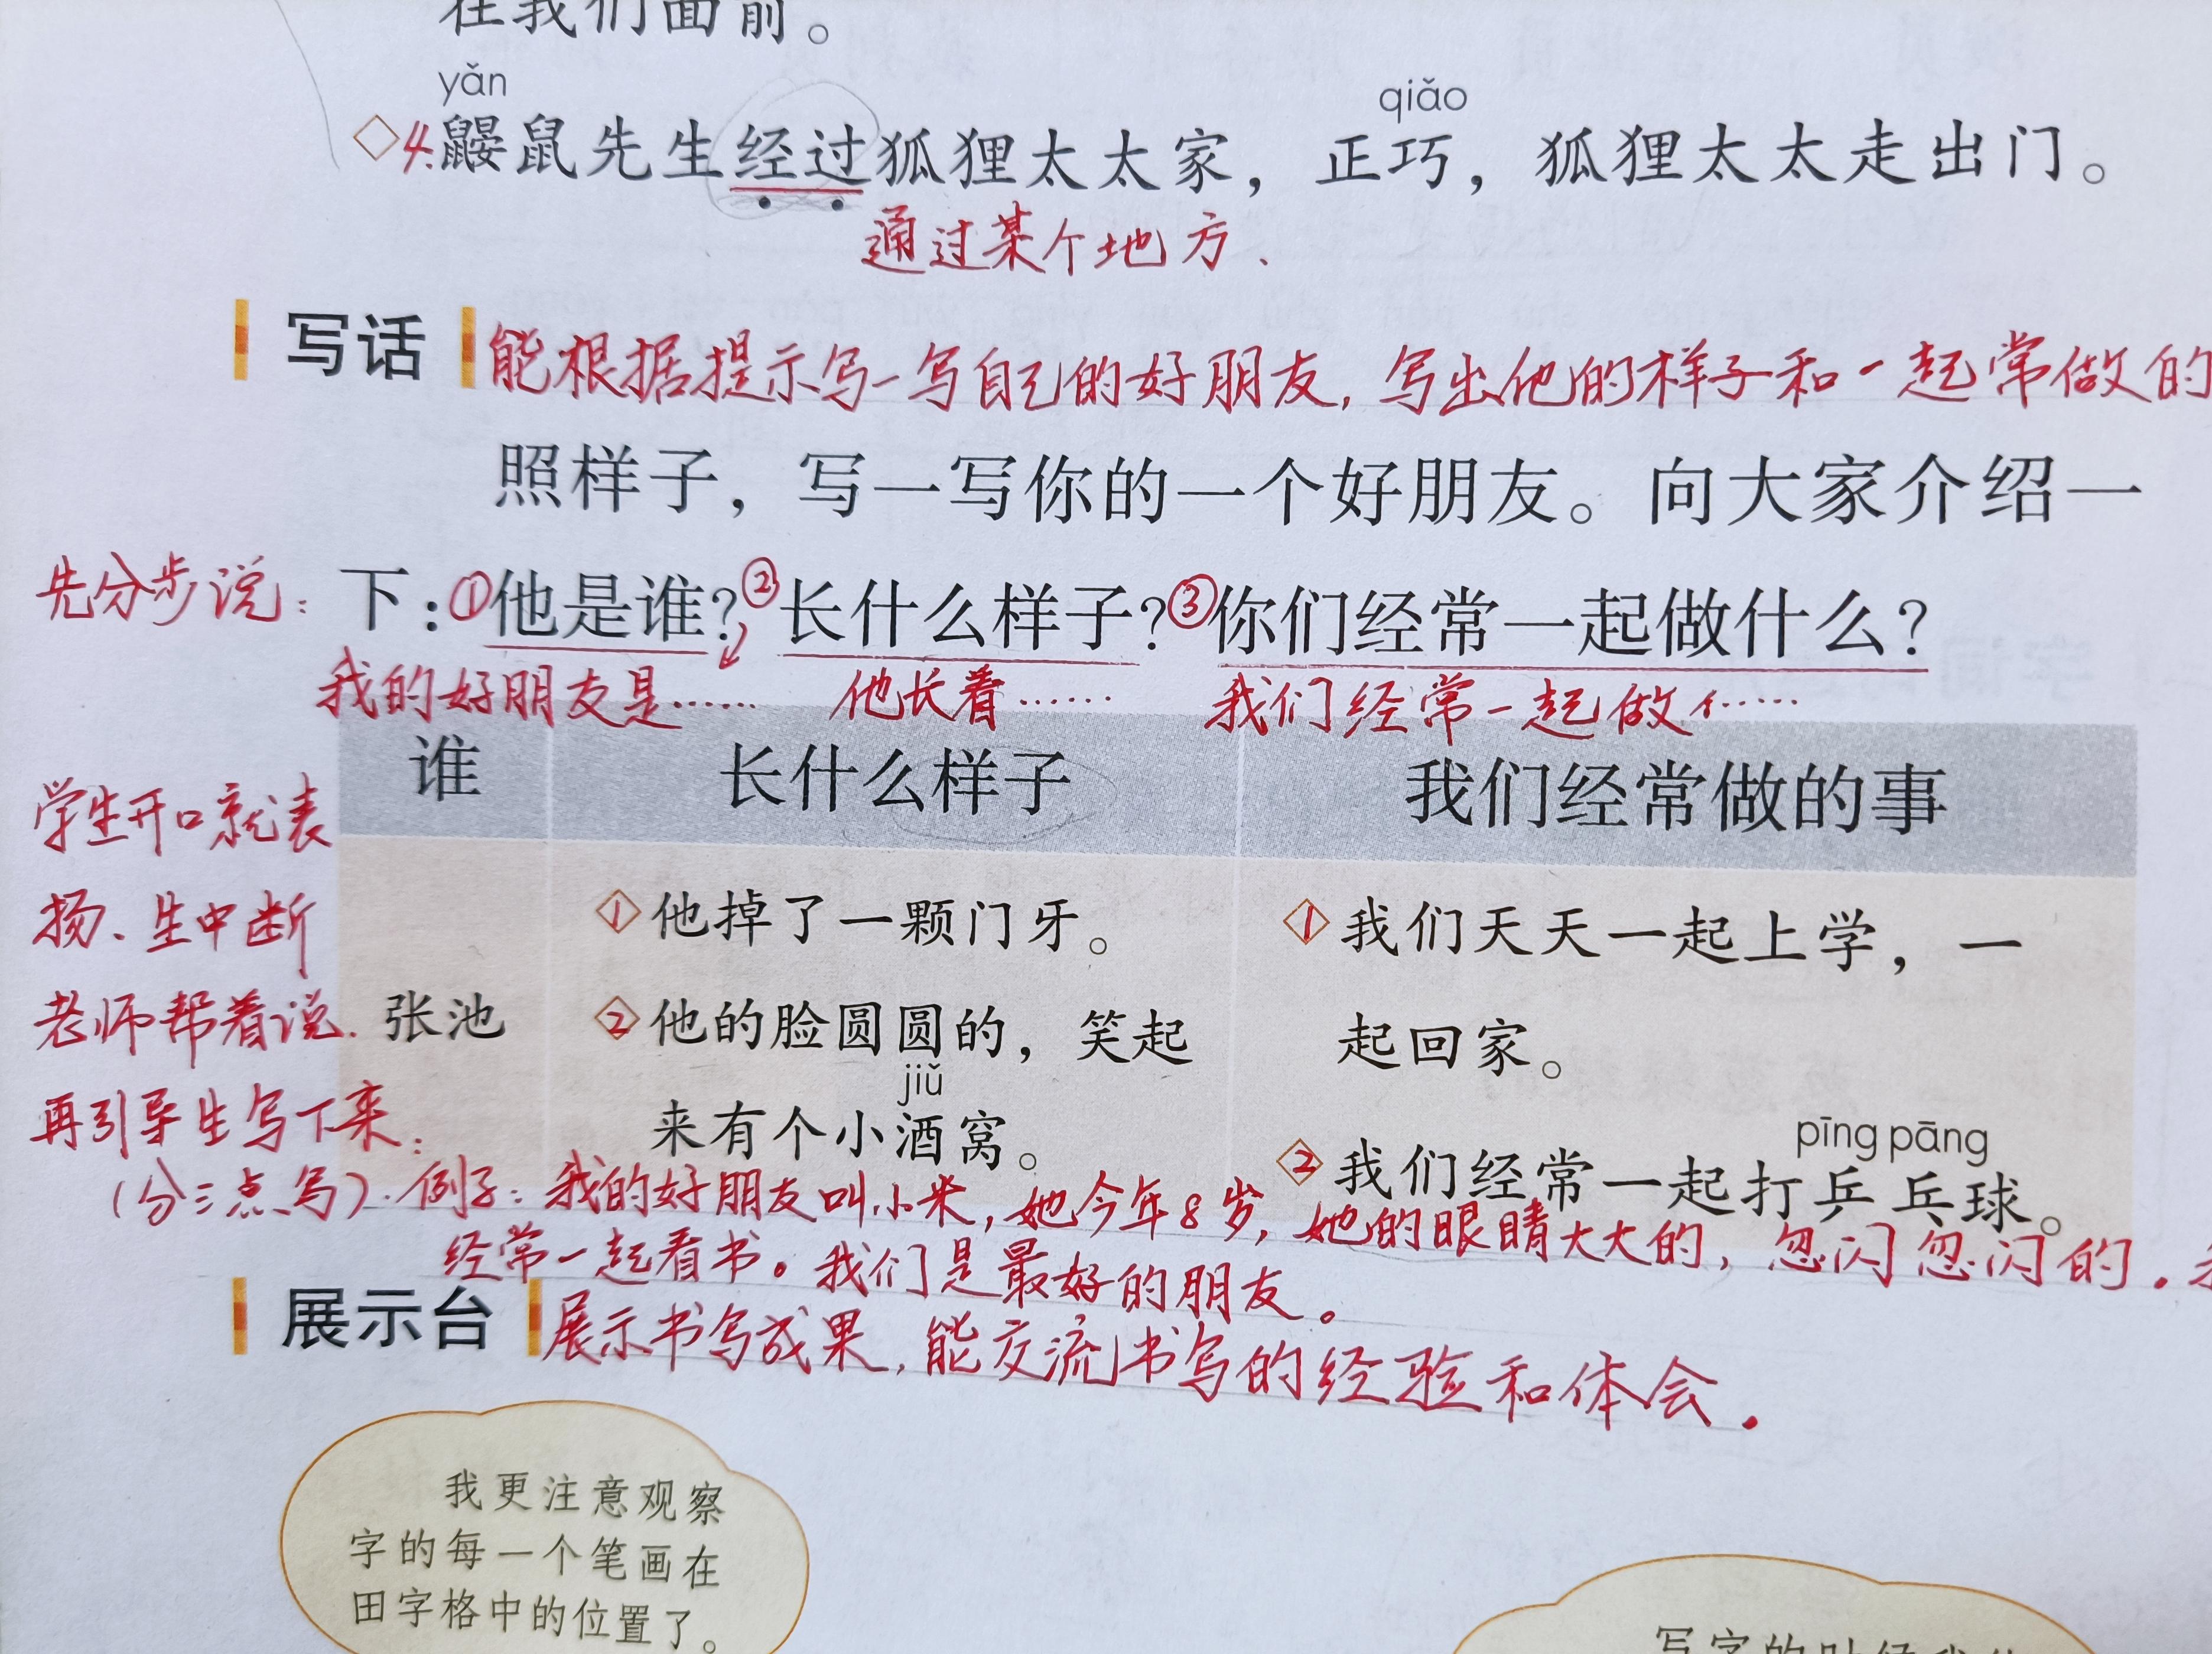 在我们面前。
yǎn qiǎo
4.鼹鼠先生经过狐狸太太家，正巧，狐狸太太走出门。
通过某个地方.
写话 能根据提示写一写自己的好朋友，写出他的样子和一起常做的
照样子，写一写你的一个好朋友。向大家介绍一
先分步说： 下：①他是谁？②长什么样子？③你们经常一起做什么？
我的好朋友是…… 他长着…… 我们经常一起做……
谁 长什么样子 我们经常做的事
学生开口就表
扬、生中断
老师帮着说.
再引导生写下来：
张池
1 他掉了一颗门牙。
2 他的脸圆圆的，笑起
jiǔ
来有个小酒窝。
1 我们天天一起上学，一
起回家。
pīng pāng
2 我们经常一起打乒乓球。
（分三点写）.例子：我的好朋友叫小米，她今年8岁，她的眼睛大大的，忽闪忽闪的.
经常一起看书。我们是最好的朋友。
展示台 展示书写成果，能交流书写的经验和体会.
我更注意观察
字的每一个笔画在
田字格中的位置了。